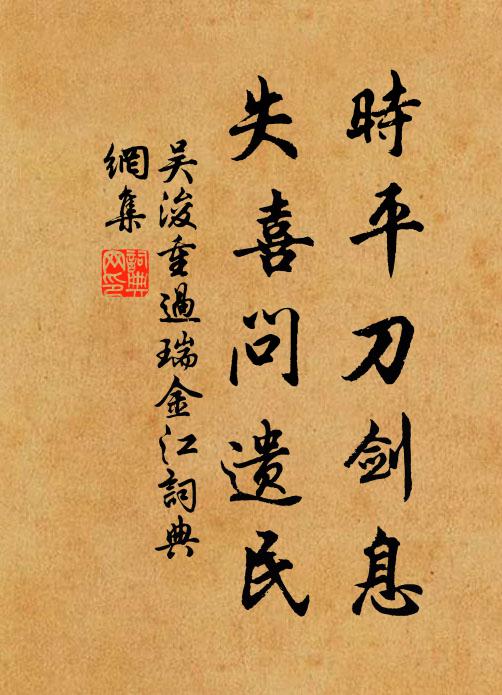 時平刀剑息
失喜問遗民
吴浚重過瑞金江詞典
網集
詞典
网印